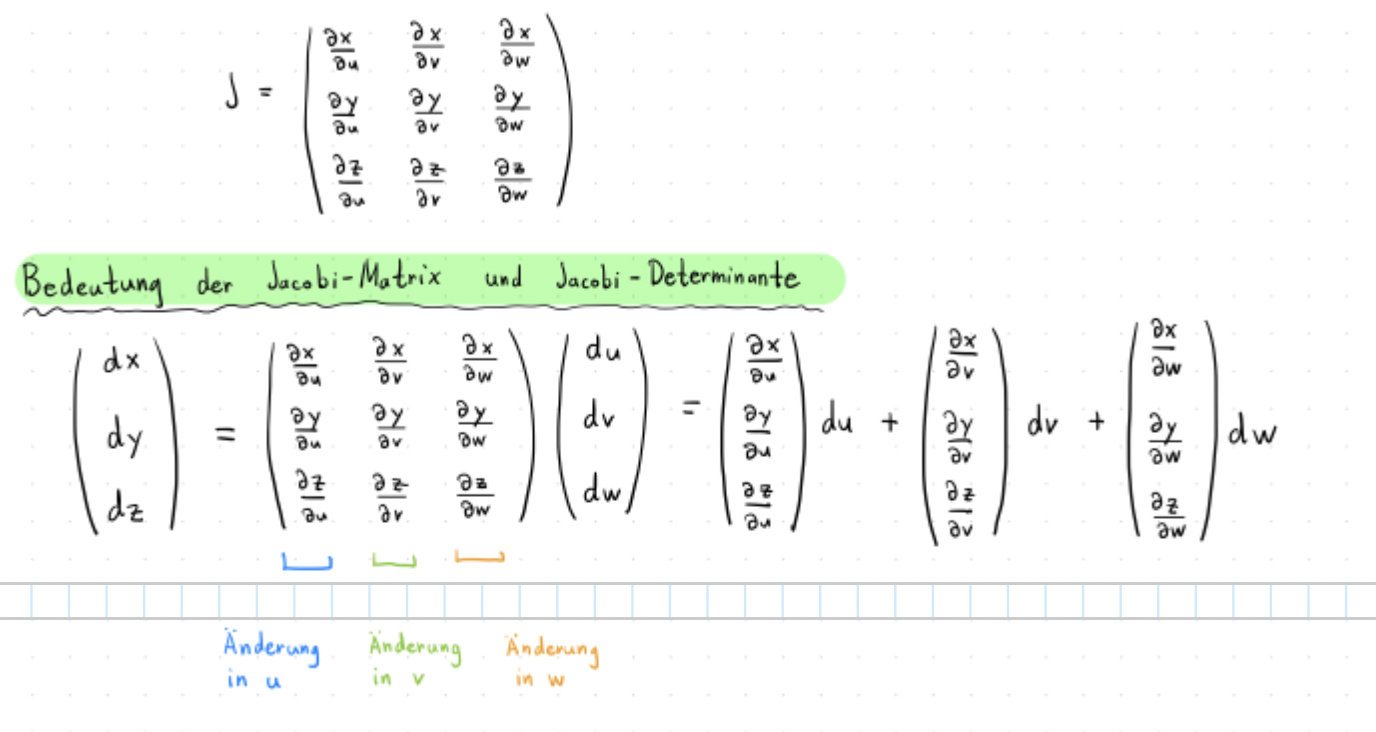 J = ( ∂x/∂u ∂x/∂v ∂x/∂w
∂y/∂u ∂y/∂v ∂y/∂w
∂z/∂u ∂z/∂v ∂z/∂w )
Bedeutung der Jacobi-Matrix und Jacobi-Determinante
( dx dy dz ) = ( ∂x/∂u ∂x/∂v ∂x/∂w ∂y/∂u ∂y/∂v ∂y/∂w ∂z/∂u ∂z/∂v ∂z/∂w ) ( du dv dw ) = ( ∂x/∂u ∂y/∂u ∂z/∂u ) du + ( ∂x/∂v ∂y/∂v ∂z/∂v ) dv + ( ∂x/∂w ∂y/∂w ∂z/∂w ) dw
Änderung Änderung Änderung
in u in v in w